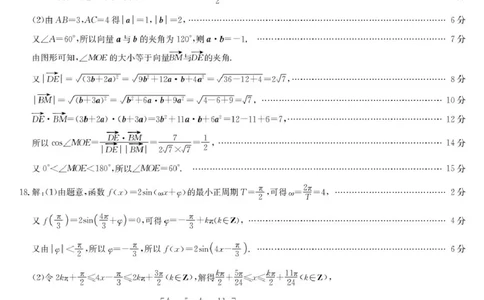 2
(2)由AB=3,AC=4得|a|=1,|b|=2,…………6分
又∠A=60°,所以向量a与b的夹角为120°,则a·b=-1. …………7分
由图形可知,∠MOE的大小等于向量BM与DE的夹角.
又|DE|=√(3b+2a)²=√9b²+12a·b+4a²=√36-12+4=2√7,…………8分
|BM|=√(b+3a)²=√b²+6a·b+9a²=√4-6+9=√7,…………10分
DE·BM=(3b+2a)·(b+3a)=3b²+11a·b+6a²=12-11+6=7,…………12分
所以cos∠MOE=DE·BM/|DE||BM|=7/2√7×√7=1/2,…………14分
又0°<∠MOE<180°,所以∠MOE=60°. …………15分
18.解:(1)由题意,函数f(x)=2sin(ωx+φ)的最小正周期T=π/2,可得ω=2π/T=4,…………2分
又f(π/3)=2sin(4π/3+φ)=0,可得φ=-π/3+kπ(k∈Z),…………4分
又由|φ|<π/2,所以φ=-π/3,所以f(x)=2sin(4x-π/3). …………6分
(2)令2kπ+π/2≤4x-π/3≤2kπ+3π/2(k∈Z),解得kπ/2+5π/24≤x≤kπ/2+11π/24(k∈Z),